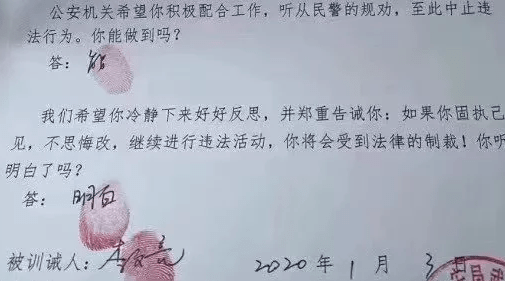 公安机关希望你积极配合工作，听从民警的规劝，至此中止违
法行为。你能做到吗？
答：能
我们希望你冷静下来好好反思，并郑重告诫你：如果你固执己
见，不思悔改，继续进行违法活动，你将会受到法律的制裁！你听
明白了吗？
答：明白
被训诫人：李文亮 2020年1月3日